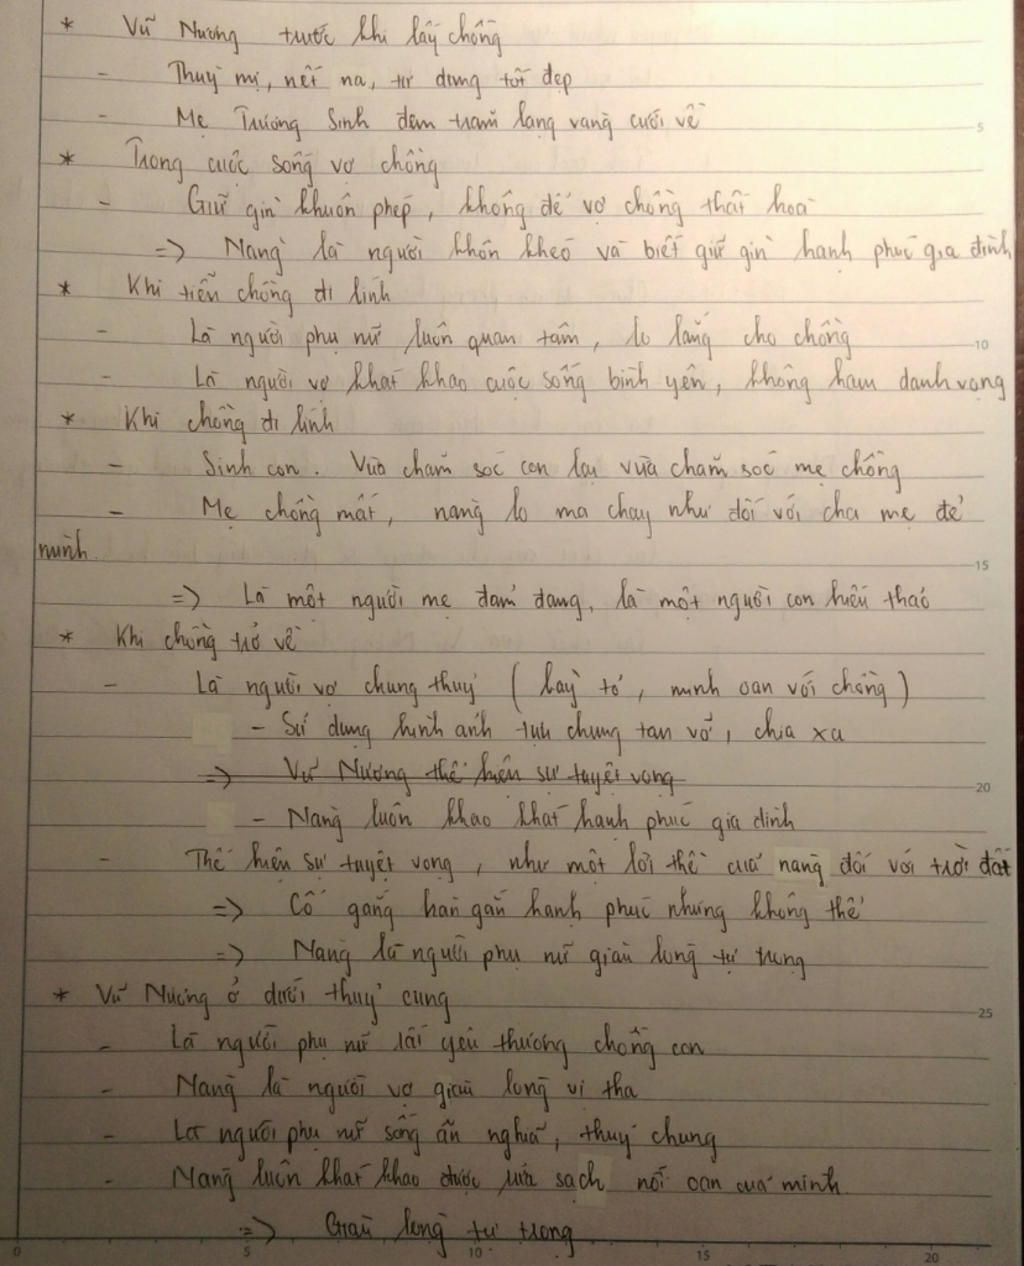 * Vũ Nương trước khi lấy chồng
- Thuỳ mị, nết na, tư dung tốt đẹp
- Mẹ Trương Sinh đem trăm lạng vàng cưới về
5
* Trong cuộc sống vợ chồng
- Giữ gìn khuôn phép, không để vợ chồng thất hoà
=> Nàng là người khôn khéo và biết giữ gìn hạnh phúc gia đình
* Khi tiễn chồng đi lính
- Là người phụ nữ luôn quan tâm, lo lắng cho chồng
10
- Là người vợ khát khao cuộc sống bình yên, không ham danh vọng
* Khi chồng đi lính
- Sinh con. Vừa chăm sóc con lại vừa chăm sóc mẹ chồng
- Mẹ chồng mất, nàng lo ma chay như đối với cha mẹ đẻ
mình.
15
=> Là một người mẹ đảm đang, là một người con hiếu thảo
* Khi chồng trở về
- Là người vợ chung thuỷ (bày tỏ, minh oan với chồng)
- Sử dụng hình ảnh tựu chung tan vỡ, chia xa
=> Vũ Nương thể hiện sự tuyệt vọng
20
- Nàng luôn khao khát hạnh phúc gia đình
- Thể hiện sự tuyệt vọng, như một lời thề của nàng đối với trời đất
=> Cố gắng hàn gắn hạnh phúc nhưng không thể
=> Nàng là người phụ nữ giàu lòng tự trọng
* Vũ Nương ở dưới thuỷ cung
25
- Là người phụ nữ rất yêu thương chồng con
- Nàng là người vợ giàu lòng vị tha
- Là người phụ nữ sống ân nghĩa, thuỷ chung
- Nàng luôn khát khao được rửa sạch nỗi oan của mình
=> Giàu lòng tự trọng
0 5 10 15 20